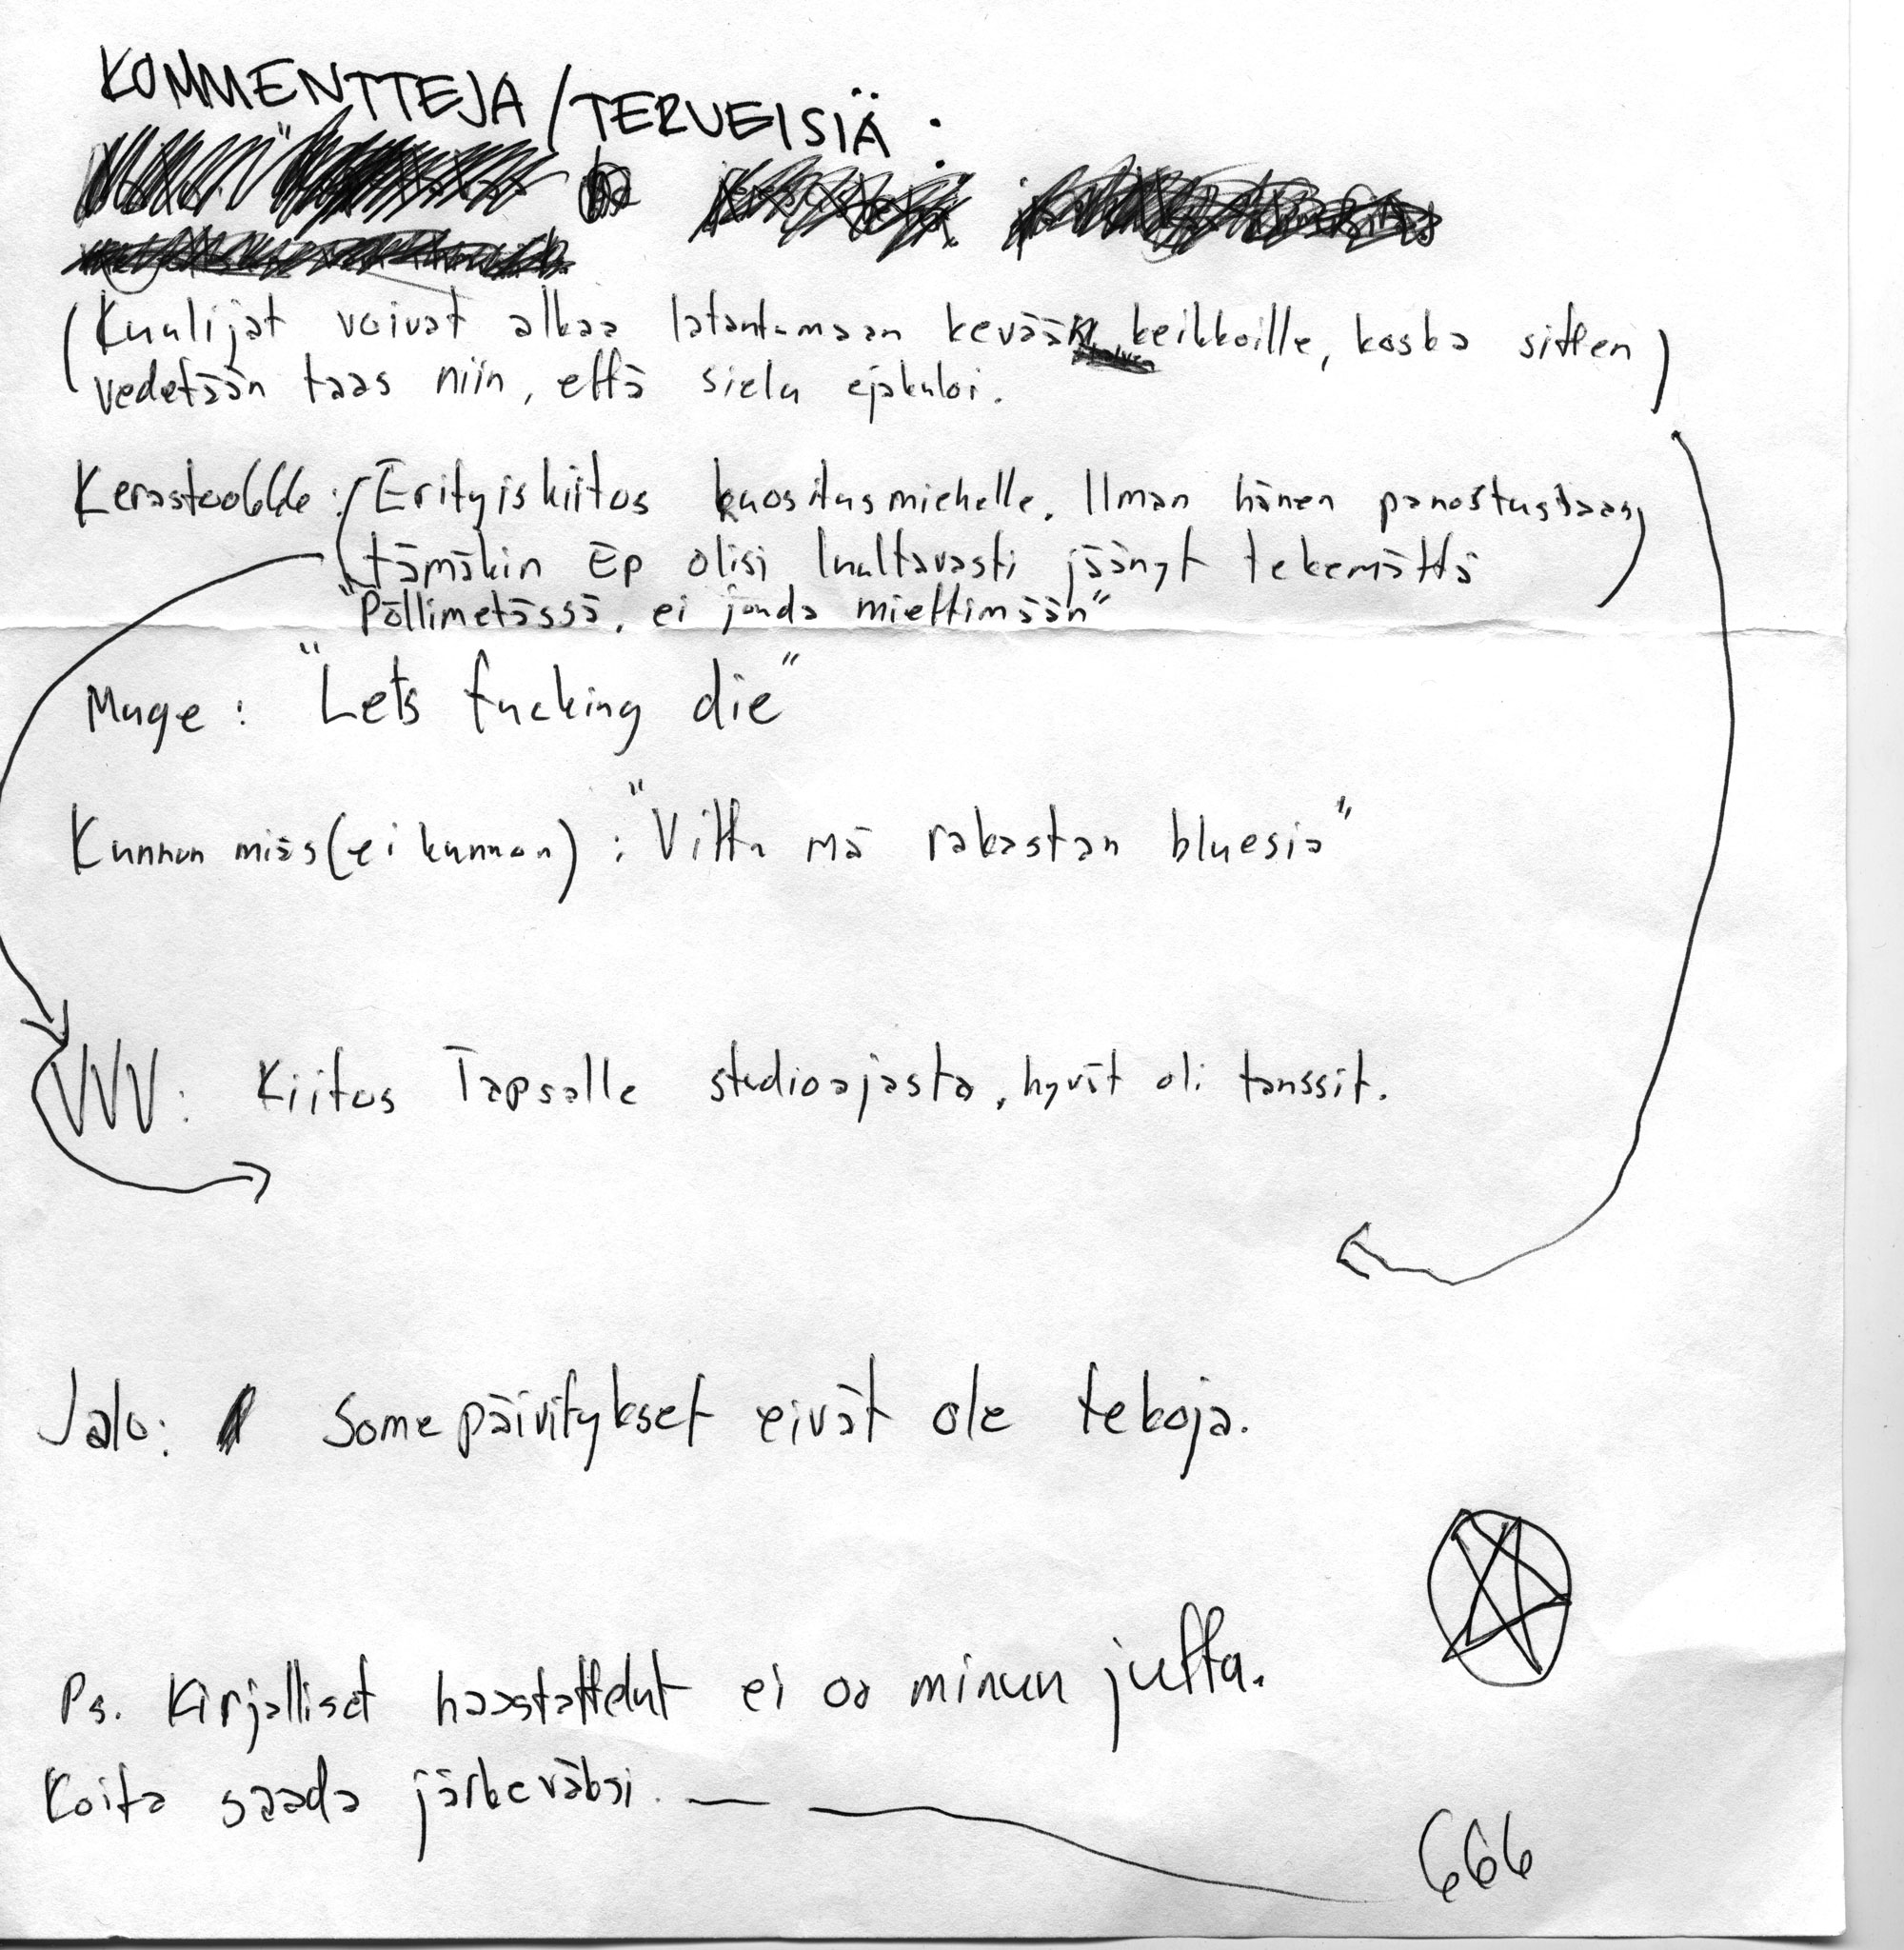 KOMMENTTEJA/TERVEISIÄ:
(Kuulijat voivat alkaa latautumaan kevään keikkoille, koska sitten)
vedetään taas niin, että sielu ejakuloi.
Kerastoo666: (Erityiskiitos kuositusmiehelle. Ilman hänen panostustaan)
tämäkin Ep olisi luultavasti jäänyt tekemättä
"Pöllimetässä, ei jouda miettimään"
Muge: "Lets fucking die"
Kunnon miäs (ei kunnon): "Vittu mä rakastan bluesia"
VVV: Kiitos Tapsalle studioajasta, hyvät oli tanssit.
Jalo: Somepäivitykset eivät ole tekoja.
Ps. Kirjalliset haastattelut ei oo minun juttu.
Koita saada järkeväksi.
666